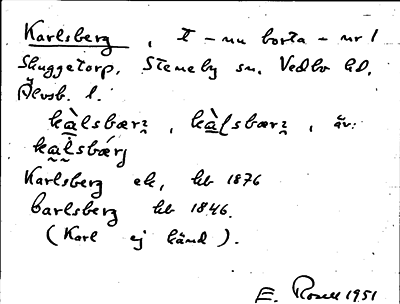 Karlsberg, t – nu borta – nr 1
Skuggetorp, Steneby sn, Vedbo hd,
Älvsb. l.
kàlsbærz̡, kàlsbærz̡, äv:
kalsbárj
Karlsberg ek, hb 1876
Carlsberg hb 1846.
(Karl ej känd).
E. Rosell 1951